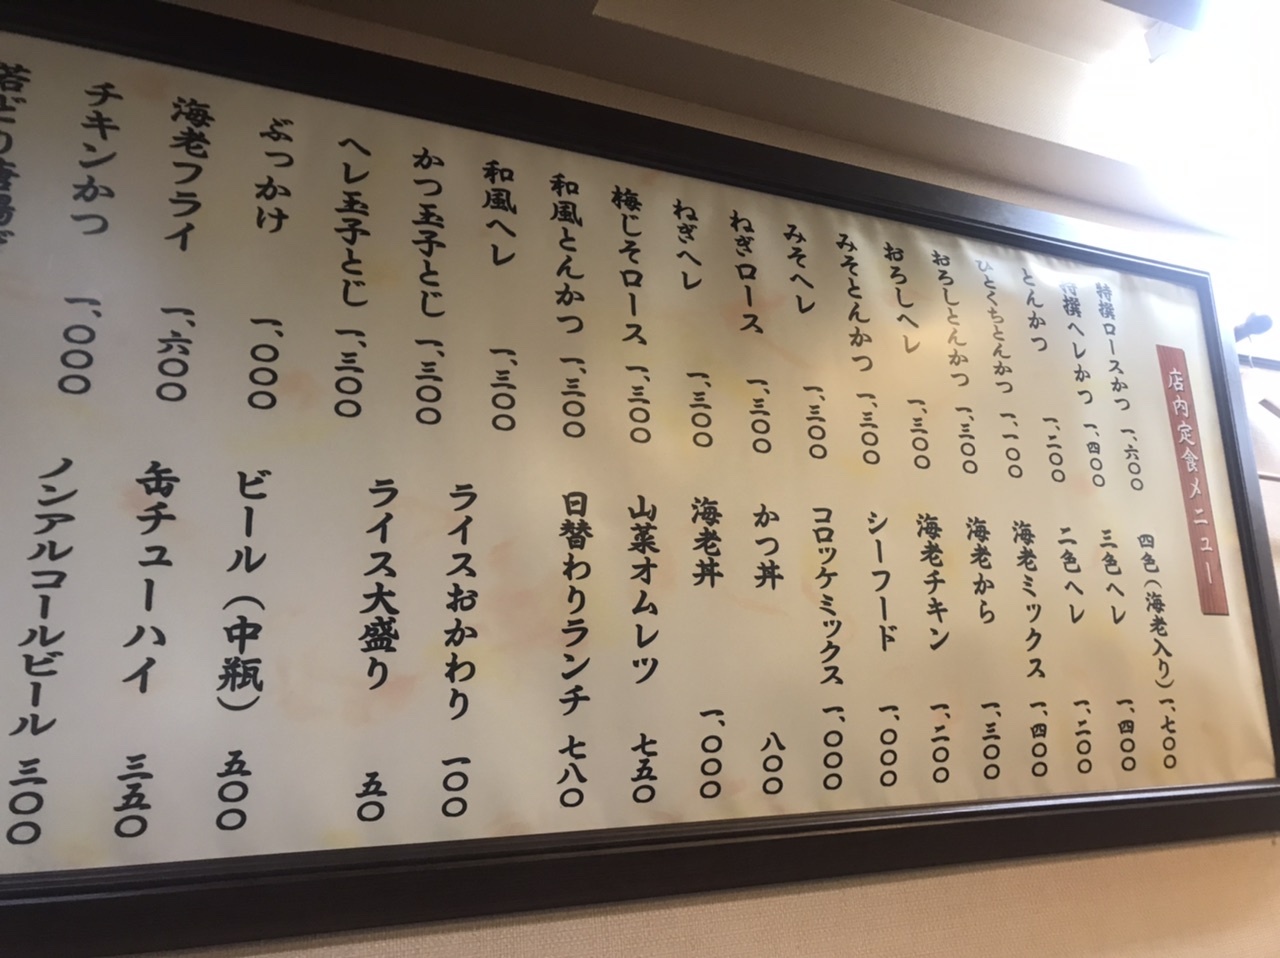 店内定食メニュー
特撰ロースかつ 一、六〇〇
特撰ヘレかつ 一、四〇〇
とんかつ 一、二〇〇
ひとくちとんかつ 一、一〇〇
おろしとんかつ 一、三〇〇
おろしヘレ 一、三〇〇
みそとんかつ 一、三〇〇
みそヘレ 一、三〇〇
ねぎロース 一、三〇〇
ねぎヘレ 一、三〇〇
梅じそロース 一、三〇〇
和風とんかつ 一、三〇〇
和風ヘレ 一、三〇〇
かつ玉子とじ 一、三〇〇
ヘレ玉子とじ 一、三〇〇
ぶっかけ 一、〇〇〇
海老フライ 一、六〇〇
チキンかつ 一、〇〇〇
若どり唐揚げ
四色(海老入り) 一、七〇〇
三色ヘレ 一、四〇〇
二色ヘレ 一、二〇〇
海老ミックス 一、四〇〇
海老から 一、三〇〇
海老チキン 一、二〇〇
シーフード 一、〇〇〇
コロッケミックス 一、〇〇〇
かつ丼 八〇〇
海老丼 一、〇〇〇
山菜オムレツ 七五〇
日替わりランチ 七八〇
ライスおかわり 一〇〇
ライス大盛り 五〇
ビール(中瓶) 五〇〇
缶チューハイ 三五〇
ノンアルコールビール 三〇〇